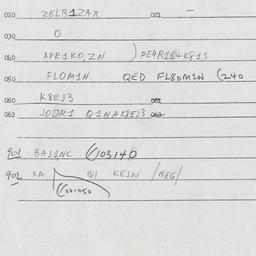 020 ZELB1ZAX 021 —
030 O
040 APR1KO,ZN ) DE4R15+K815
050 FLOM1N QED FL8OM1N (240
060 K8EJ3 061
062 JODR1 Q1NAK8EJ3 063
901 BAJ1NC (103140
902 KA Q1 KEJN /NEG/
(001050